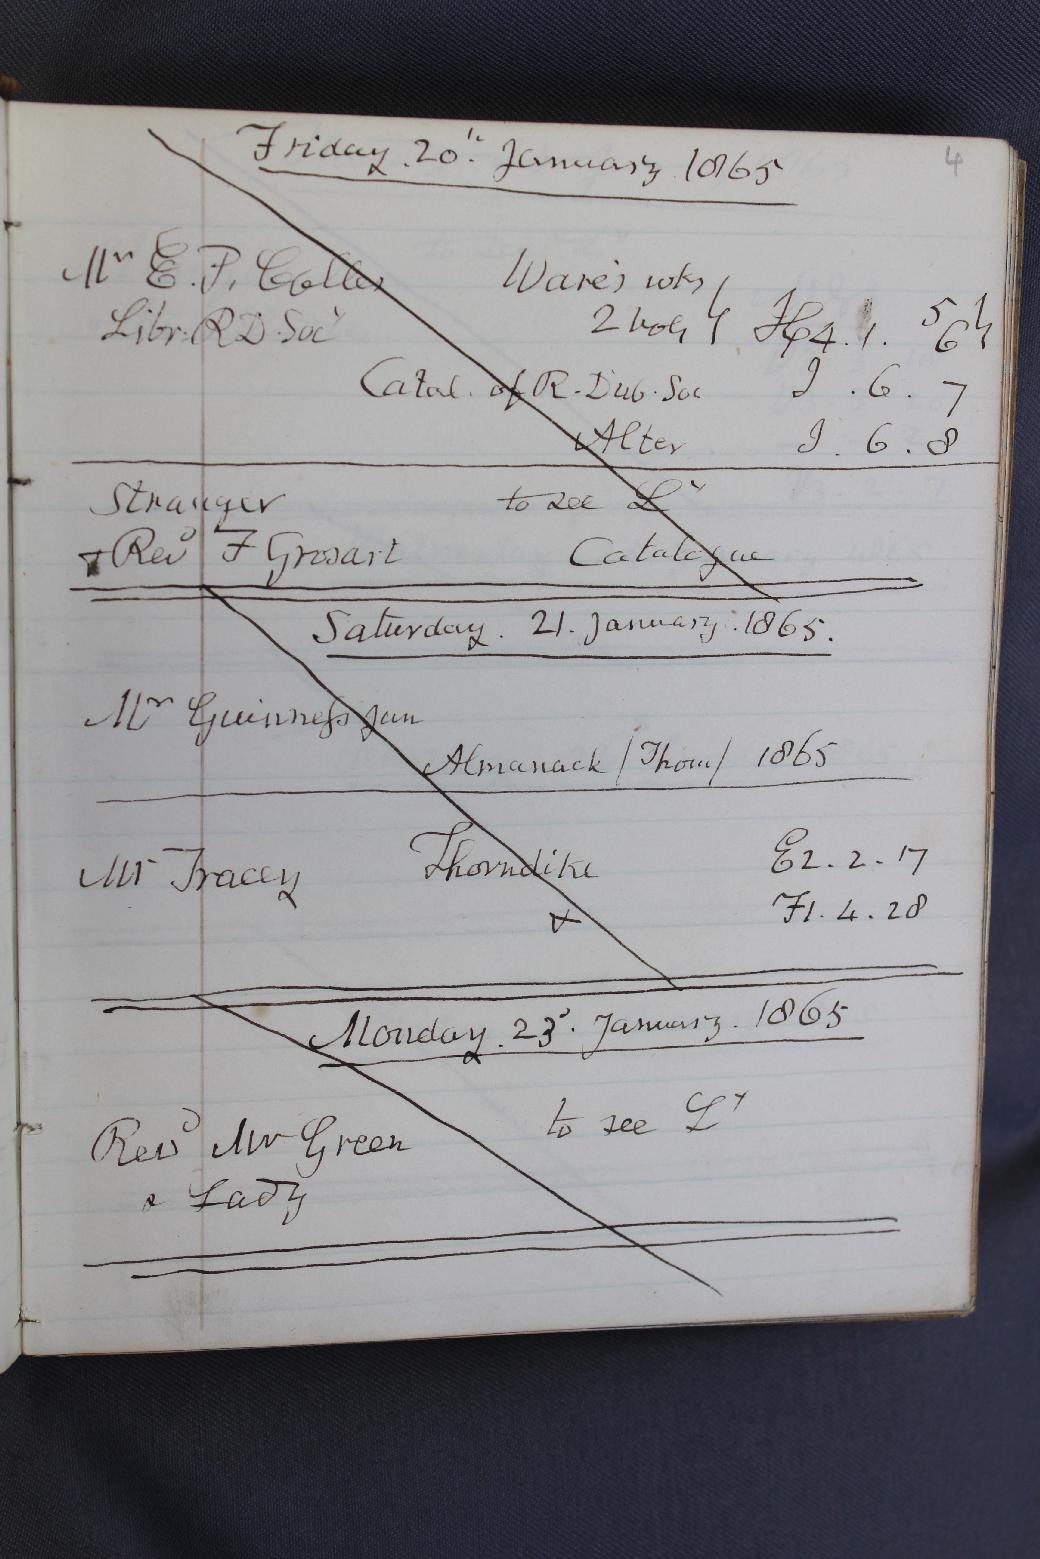 4
Friday 20th January 1865
Mr E. P. Colles Ware's wks
Libr. R D. Socy 2 vols H4.1. 5 6
Catal. of R. Dub. Soc I . 6 . 7
Alter I . 6 . 8
Stranger to see Ly
+ Revd F Grosart Catalogue
Saturday . 21. January . 1865.
Mr Guinness jun
Almanack / Thom / 1865
Mr Tracey Thorndike E2 . 2 . 17
+ F1 . 4 . 28
Monday . 23d. January . 1865
Revd Mr Green to see Ly
& Lady